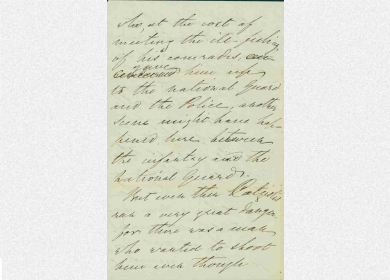 at the cost of
meeting the ill-feeling
of his comrades,
gave
him up
to the national Guard
and the Police, another
scene might have hap-
pened here between
the infantry and the
National Guards.
But even then
ran a very great danger
for there was a man
who wanted to shoot
him even though